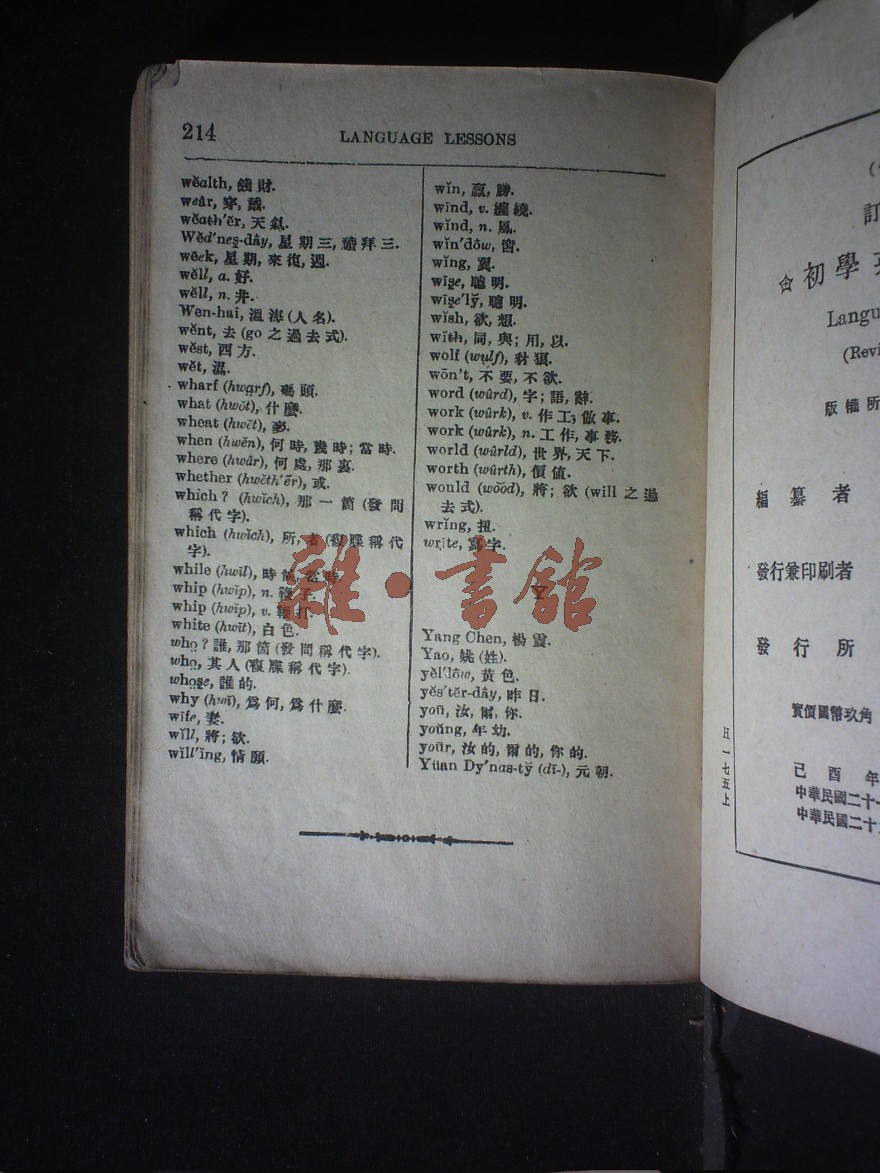 214
LANGUAGE LESSONS
wĕalth, 錢財.
weâr, 穿, 戴.
wĕath′ẽr, 天氣.
Wĕd′neş-dāy, 星期三, 禮拜三.
wēek, 星期, 來復, 週.
wĕll, a. 好.
wĕll, n. 井.
Wen-hai, 溫海 (人名).
wĕnt, 去 (go 之過去式).
wĕst, 西方.
wĕt, 濕.
wharf (hwạrf), 碼頭.
what (hwŏt), 什麼.
wheat (hwēt), 麥.
when (hwĕn), 何時, 幾時; 當時.
where (hwâr), 何處, 那裏.
whether (hwĕth′ẽr), 或.
which? (hwĭch), 那一箇 (發問
稱代字).
which (hwĭch), 所, 者 (複牒稱代
字).
while (hwīl), 時候, 當時.
whip (hwĭp), n. 鞭子.
whip (hwĭp), v. 鞭打.
white (hwīt), 白色.
whọ? 誰, 那箇 (發問稱代字).
whọ, 其人 (複牒稱代字).
whọşe, 誰的.
why (hwī), 爲何, 爲什麼.
wīfe, 妻.
wĭll, 將; 欲.
wĭll′ing, 情願.
wĭn, 贏, 勝.
wīnd, v. 纏繞.
wĭnd, n. 風.
wĭn′dōw, 窗.
wĭng, 翼.
wīşe, 聰明.
wīşe′lў, 聰明.
wĭsh, 欲, 想.
wĭth, 同, 與; 用, 以.
wolf (wụlf), 豺狼.
wōn't, 不要, 不欲.
word (wûrd), 字; 語, 辭.
work (wûrk), v. 作工; 做事.
work (wûrk), n. 工作, 事務.
world (wûrld), 世界, 天下.
worth (wûrth), 價值.
would (wŏŏd), 將; 欲 (will 之過
去式).
wrĭng, 扭.
wrīte, 寫字.
Y
Yang Chen, 楊震.
Yao, 姚 (姓).
yĕl′lōw, 黃色.
yĕs′tẽr-dāy, 昨日.
yoū, 汝, 爾, 你.
yoŭng, 年幼.
yoūr, 汝的, 爾的, 你的.
Yüan Dy′nas-tў (dī-), 元朝.
雜·書館
訂
初學
Langu
(Revi
版權所
編纂者
發行兼印刷者
發行所
實價國幣玖角
己酉年
中華民國二十
中華民國二十
丑一七五上